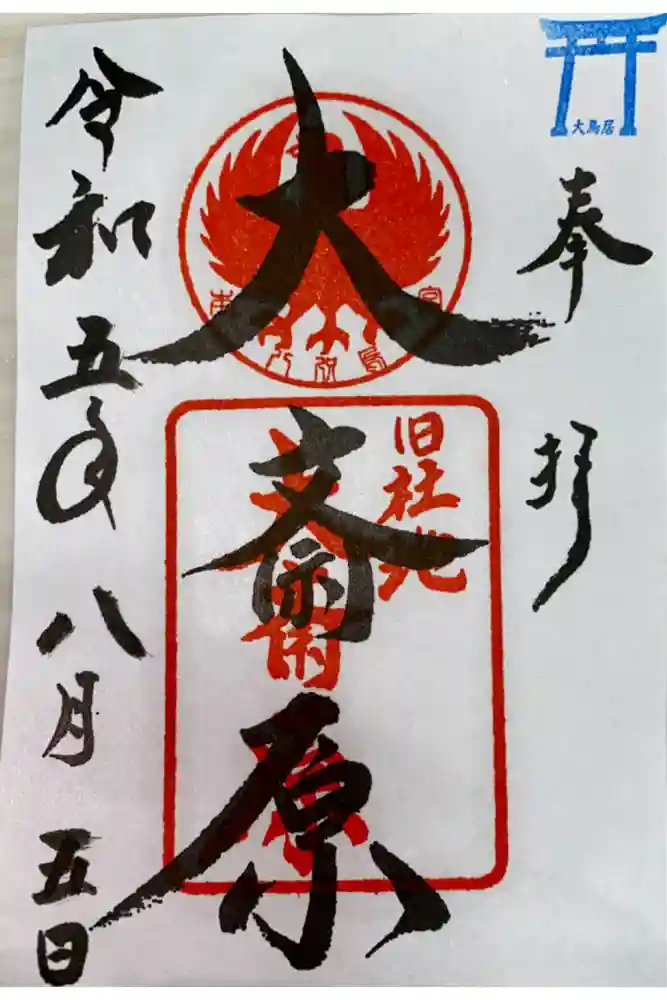 大鳥居
奉拝
大斎原
旧社地
大斎原
令和五年八月五日